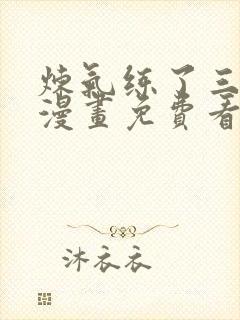 煉氣练了三
漫畫免費看
沐衣衣